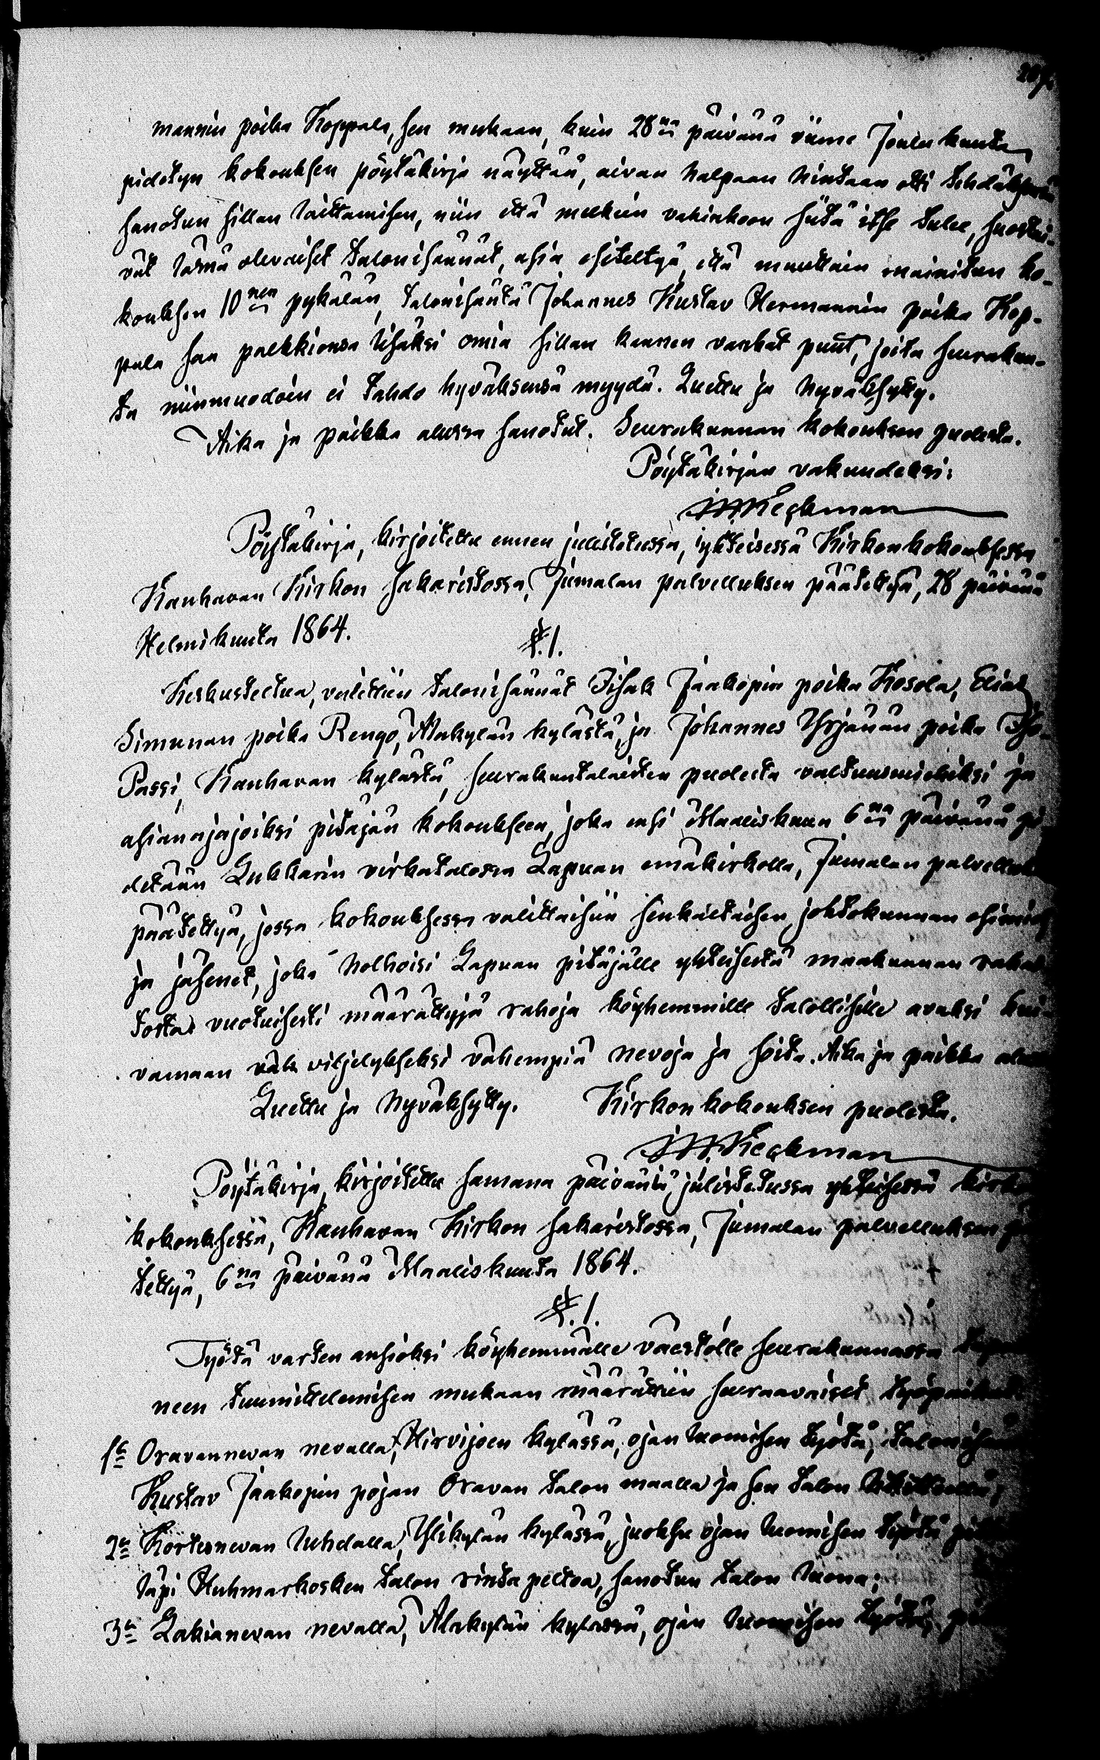 mannin poika Koppala, sen mukaan, kuin 28na päivänä viime Joulukuuta
pidetyn kokouksen pöytäkirja näyttää, aivan halpaan hintaan otti tehdäksensä
sanotun sillan laittamisen, niin että melkein vahinkoon siitä itse tulee, suostui-
vat läsnä olevaiset talonisännät, asia esiteltyä, että muuttain mainitun ko-
kouksen 10nen pykälän, talonisäntä Johannes Kustav Hermannin poika Kop-
pala saa palkkionsa lisäksi omia sillan kannen vanhat puut, joita seurakun-
ta niinmuodoin ei tahdo hyväksensä myydä. Luettu ja hyväksytty.
Aika ja paikka alussa sanotut. Seurakunnan kokouksen puolesta.
Pöytäkirjan vakuudeksi:
Keckman
Pöytäkirja, kirjoitettu ennen julistetussa, yhteisessä Kirkonkokouksessa
Kauhavan Kirkon sakaristossa, Jumalan palvelluksen päätettyä, 28 päivänä
Helmikuuta 1864.
§.1.
Keskusteltua, valittiin talonisännät Iisak Jaakopin poika Kosola, Elias
Simunan poika Rengo, Alakylän kylästä, ja Johannes Yrjänän poika
Passi, Kauhavan kylästä, seurakuntalaisten puolesta valtuusmiehiksi ja
asianajajoiksi pitäjän kokoukseen, joka ensi Maaliskuun 6na päivänä pi-
detään Lukkarin virkatalossa Lapuan emäkirkolla, Jumalan palvelluksen
päätettyä, jossa kokouksessa valittaisiin senkaltaisen johtokunnan esimies
ja jäsenet, joka holhoisi Lapuan pitäjälle yhteisestä maakunnan rahas-
tosta vuotuisesti määrättyjä rahoja köyhemmille talollisille avuksi kui-
vamaan viljelykseksi vähempiä nevoja ja soita. Aika ja paikka alussa
Luettu ja hyväksytty. Kirkonkokouksen puolesta.
Keckman
Pöytäkirja, kirjoitettu samana päivänä, julistetussa yhteisessä kirkon
kokouksessa, Kauhavan Kirkon sakaristossa, Jumalan palvelluksen pää-
tettyä, 6na päivänä Maaliskuuta 1864.
§.1.
Työtä varten ansioksi köyhemmälle väestölle seurakunnassa
neen tuumittelemisen mukaan määrättiin seuraavaiset työpaikat
1ks Oravannevan nevalla, Hirvijoen kylässä, ojan luomisen työtä, talonisännän
Kustav Jaakopin pojan Oravan talon maalla ja sen talon
2ks Kortesnevan luhdalla, Ylikylän kylässä, juoksu ojan luomisen työtä
läpi Huhmarkosken talon rinta peltoa, sanotun talon luona;
3ks Lakianevan nevalla, Alakylän kylässä, ojan luomisen työtä,